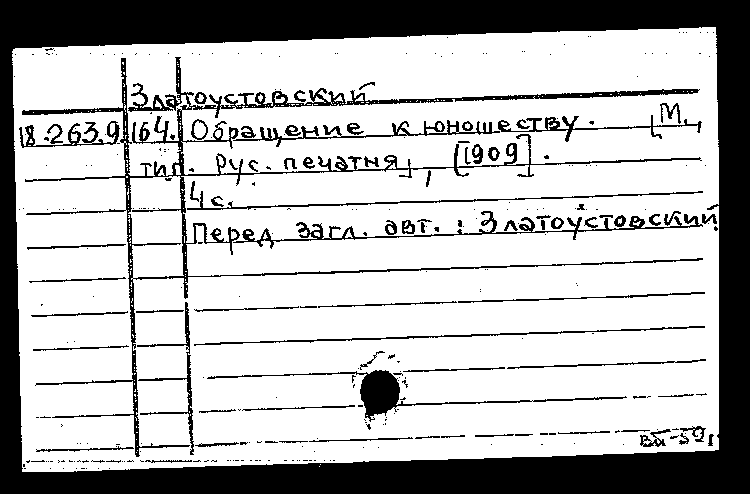 Златоустовский
18.263.9.164. Обращение к юношеству. [М.,
тип. Рус. печатня], [1909].
4 с.
Перед загл. авт.: Златоустовский